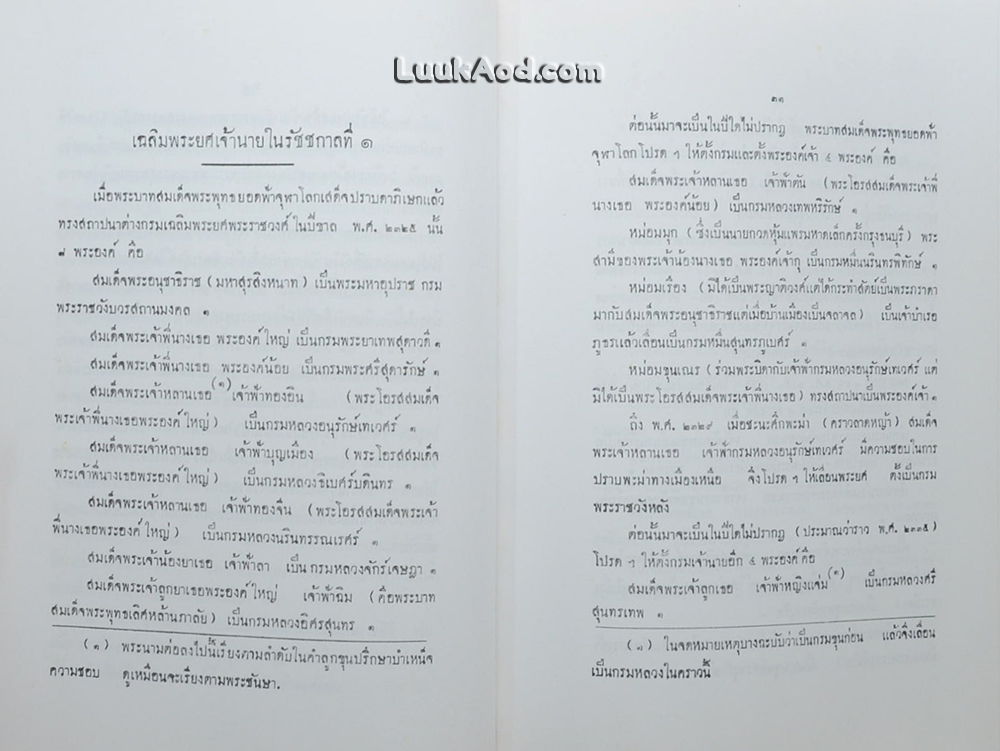 LuukAod.com
เฉลิมพระยศเจ้านายในรัชชกาลที่ ๑
เมื่อพระบาทสมเด็จพระพุทธยอดฟ้าจุฬาโลกเสด็จปราบดาภิเษกแล้ว
ทรงสถาปนาต่างกรมเฉลิมพระยศพระราชวงศ์ ในปีขาล พ.ศ. ๒๓๒๕ นั้น
๘ พระองค์ คือ
สมเด็จพระอนุชาธิราช (มหาสุรสิงหนาท) เป็นพระมหาอุปราช กรม
พระราชวังบวรสถานมงคล ๑
สมเด็จพระเจ้าพี่นางเธอ พระองค์ใหญ่ เป็นกรมพระยาเทพสุดาวดี ๑
สมเด็จพระเจ้าพี่นางเธอ พระองค์น้อย เป็นกรมพระศรีสุดารักษ์ ๑
สมเด็จพระเจ้าหลานเธอ (๑) เจ้าฟ้าทองอิน (พระโอรสสมเด็จ
พระเจ้าพี่นางเธอพระองค์ใหญ่) เป็นกรมหลวงอนุรักษ์เทเวศร์ ๑
สมเด็จพระเจ้าหลานเธอ เจ้าฟ้าบุญเมือง (พระโอรสสมเด็จ
พระเจ้าพี่นางเธอพระองค์ใหญ่) เป็นกรมหลวงธิเบศร์บดินทร ๑
สมเด็จพระเจ้าหลานเธอ เจ้าฟ้าทองจีน (พระโอรสสมเด็จพระเจ้า
พี่นางเธอพระองค์ใหญ่) เป็นกรมหลวงนรินทรรณเรศร์ ๑
สมเด็จพระเจ้าน้องยาเธอ เจ้าฟ้าลา เป็นกรมหลวงจักร์เจษฎา ๑
สมเด็จพระเจ้าลูกยาเธอพระองค์ใหญ่ เจ้าฟ้าฉิม (คือพระบาท
สมเด็จพระพุทธเลิศหล้านภาลัย) เป็นกรมหลวงอิศรสุนทร ๑
(๑) พระนามต่อลงไปนี้เรียงตามลำดับในคำลูกขุนปรึกษาบำเหน็จ
ความชอบ ดูเหมือนจะเรียงตามพระชันษา.
๑๑
ต่อนั้นมาจะเป็นในปีใดไม่ปรากฏ พระบาทสมเด็จพระพุทธยอดฟ้า
จุฬาโลกโปรด ฯ ให้ตั้งกรมและตั้งพระองค์เจ้า ๔ พระองค์ คือ
สมเด็จพระเจ้าหลานเธอ เจ้าฟ้าตัน (พระโอรสสมเด็จพระเจ้าพี่
นางเธอ พระองค์น้อย) เป็นกรมหลวงเทพหริรักษ์ ๑
หม่อมมุก (ซึ่งเป็นนายกวดหุ้มแพรมหาดเล็กครั้งกรุงธนบุรี) พระ
สามีของพระเจ้าน้องนางเธอ พระองค์เจ้ากุ เป็นกรมหมื่นนรินทรพิทักษ์ ๑
หม่อมเรือง (มิได้เป็นพระญาติวงศ์แต่ได้กระทำสัตย์เป็นพระภราดา
มากับสมเด็จพระอนุชาธิราชแต่เมื่อบ้านเมืองเป็นจลาจล) เป็นเจ้าบำเรอ
ภูธรแล้วเลื่อนเป็นกรมหมื่นสุนทรภูเบศร์ ๑
หม่อมขุนเณร (ร่วมพระบิดากับเจ้าฟ้ากรมหลวงอนุรักษ์เทเวศร์ แต่
มิได้เป็นพระโอรสสมเด็จพระเจ้าพี่นางเธอ) ทรงสถาปนาเป็นพระองค์เจ้า ๑
ถึง พ.ศ. ๒๓๒๙ เมื่อชะนะศึกพะม่า (คราวลาดหญ้า) สมเด็จ
พระเจ้าหลานเธอ เจ้าฟ้ากรมหลวงอนุรักษ์เทเวศร์ มีความชอบในการ
ปราบพะม่าทางเมืองเหนือ จึงโปรด ฯ ให้เลื่อนพระยศ ตั้งเป็นกรม
พระราชวังหลัง
ต่อนั้นมาจะเป็นในปีใดไม่ปรากฏ (ประมาณว่าราว พ.ศ. ๒๓๓๕)
โปรด ฯ ให้ตั้งกรมเจ้านายอีก ๔ พระองค์ คือ
สมเด็จพระเจ้าลูกเธอ เจ้าฟ้าหญิงแจ่ม (๑) เป็นกรมหลวงศรี
สุนทรเทพ ๑
(๑) ในจดหมายเหตุบางฉะบับว่าเป็นกรมขุนก่อน แล้วจึงเลื่อน
เป็นกรมหลวงในคราวนี้